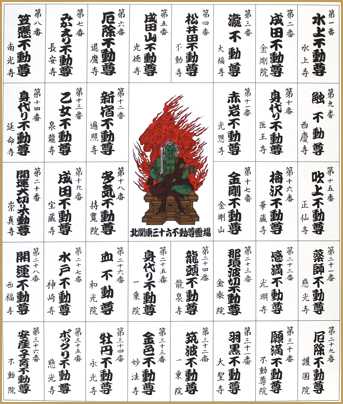 第一番
水上不動尊
水上寺
第二番
成田不動尊
金剛院
第三番
瀧不動尊
大福寺
第四番
松井田不動尊
不動寺
第五番
成田山不動尊
光徳寺
第六番
厄除不動尊
退魔寺
第七番
みかえり不動尊
長安寺
第八番
笠懸不動尊
南光寺
第九番
融不動尊
西慶寺
第十番
身代り不動尊
医王寺
第十一番
赤岩不動尊
光恩寺
第十二番
新宿不動尊
遍照寺
第十三番
乙女不動尊
泉龍寺
第十四番
身代り不動尊
延命寺
第十五番
吹上不動尊
正仙寺
第十六番
梅沢不動尊
華蔵寺
第十七番
金剛不動尊
金剛山
北関東三十六不動尊霊場
第十八番
多気不動尊
持宝院
第十九番
成田不動尊
宝蔵寺
第二十番
開運犬切り不動尊
崇真寺
第二十一番
薬師不動尊
慈光寺
第二十二番
信満不動尊
光明寺
第二十三番
那須波切不動尊
金乗院
第二十四番
龍頭不動尊
龍泉寺
第二十五番
身代り不動尊
一乗院
第二十六番
血不動尊
和光院
第二十七番
水戸不動尊
神崎寺
第二十八番
開運不動尊
西福寺
第二十九番
厄除不動尊
護国院
第三十番
願満不動尊
不動尊院
第三十一番
羽黒不動尊
大聖寺
第三十二番
筑波不動尊
一乗院
第三十三番
金色不動尊
妙法寺
第三十四番
牡丹不動尊
永光寺
第三十五番
ポックリ不動尊
慈光寺
第三十六番
安産子育不動尊
不動院